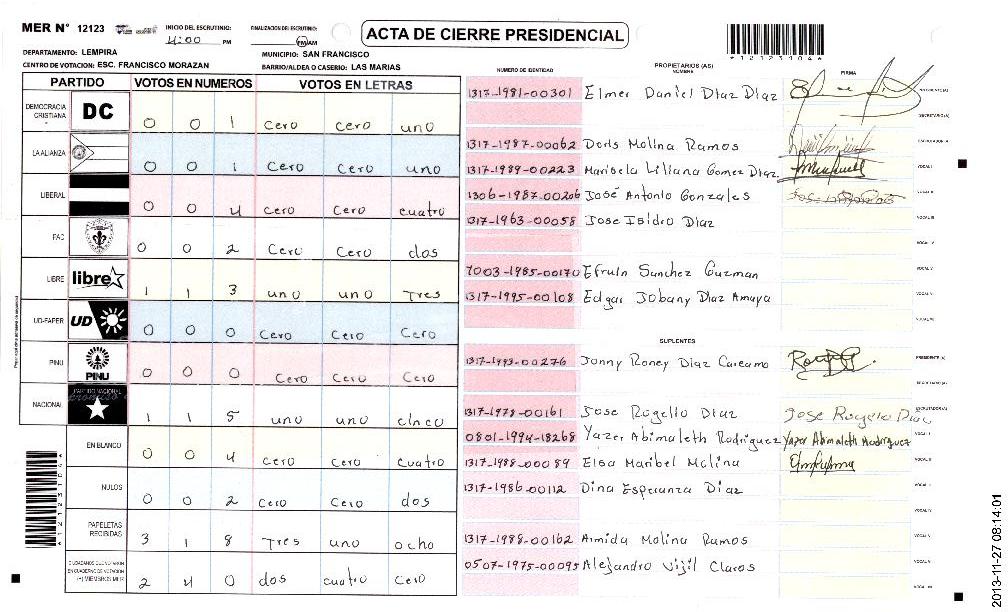 MER N° 12123 INICIO DEL ESCRUTINIO: 4:00 PM FINALIZACION DEL ESCRUTINIO: PM/AM
ACTA DE CIERRE PRESIDENCIAL
DEPARTAMENTO: LEMPIRA MUNICIPIO: SAN FRANCISCO
CENTRO DE VOTACION: ESC. FRANCISCO MORAZAN BARRIO/ALDEA O CASERIO: LAS MARIAS
*12123104*
PARTIDO VOTOS EN NUMEROS VOTOS EN LETRAS
DEMOCRACIA CRISTIANA DC 0 0 1 cero cero uno
LA ALIANZA 0 0 1 cero cero uno
LIBERAL 0 0 4 cero cero cuatro
PAC 0 0 2 cero cero dos
LIBRE libre 1 1 3 uno uno Tres
UD-FAPER UD 0 0 0 cero cero cero
PINU PINU 0 0 0 cero cero cero
NACIONAL PARTIDO NACIONAL 1 1 5 uno uno cinco
EN BLANCO 0 0 4 cero cero cuatro
NULOS 0 0 2 cero cero dos
PAPELETAS RECIBIDAS 3 1 8 Tres uno ocho
CIUDADANOS QUE VOTARON EN CUADERNO DE VOTACION (+) MIEMBROS MER 2 4 0 dos cuatro cero
NUMERO DE IDENTIDAD PROPIETARIOS (AS) NOMBRE FIRMA
1317-1981-00301 Elmer Daniel Diaz Diaz PRESIDENTE(A)
SECRETARIO(A)
1317-1987-00062 Doris Molina Ramos ESCRUTADOR(A)
1317-1989-00223 Maricela Liliana Gomez Diaz VOCAL I
1306-1987-00206 José Antonio Gonzales VOCAL II
1317-1963-00058 Jose Isidro Diaz VOCAL III
VOCAL IV
7003-1985-00170 Efrain Sanchez Guzman VOCAL V
1317-1995-00108 Edgar Jobany Diaz Amaya VOCAL VI
VOCAL VII
SUPLENTES
1317-1993-00276 Jonny Roney Diaz Carcamo PRESIDENTE(A)
SECRETARIO(A)
1317-1978-00161 Jose Rogelio Diaz Jose Rogelio Diaz ESCRUTADOR(A)
0801-1994-18268 Yazer Abimaleth Rodriguez Yazer Abimaleth Rodriguez VOCAL I
1317-1988-00089 Elsa Maribel Molina VOCAL II
1317-1986-00112 Dina Esperanza Diaz
VOCAL IV
1317-1988-00162 Armida Molina Ramos VOCAL V
0507-1975-00095 Alejandro Vijil Claros VOCAL VI
2013-11-27 08:14:01